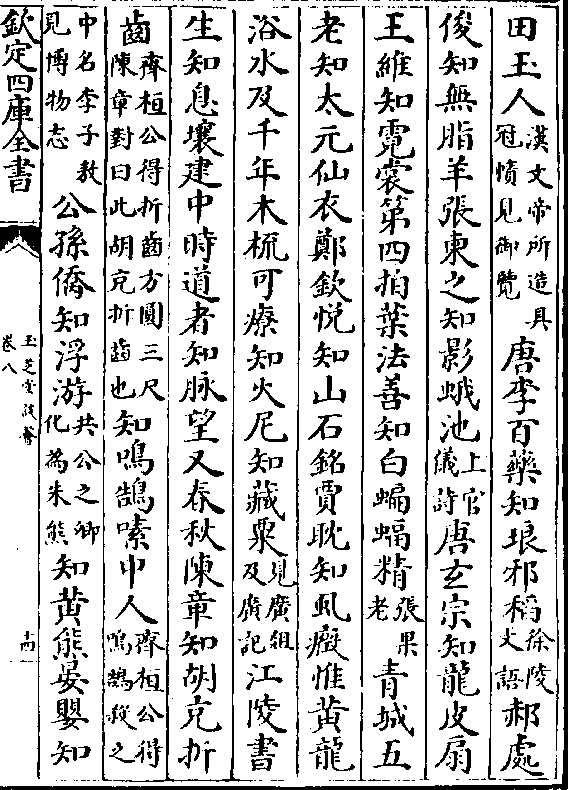 田玉人漢文帝所造具冠幘見御覽唐李百藥知琅邪稻徐陵丈語郝處
俊知無脂羊張柬之知影蛾池上官儀詩唐玄宗知龍皮扇
王維知霓裳第四拍葉法善知白蝙蝠精張果老青城五
老知太元仙衣鄭欽悅知山石銘賈耽知虱癥惟黃龍
浴水及千年木梳可療知火尼知藏粟見廣組及廣記江陵書
生知息壤建中時道者知脉望又春秋陳章知胡充折
齒齊桓公得折齒方圓三尺陳章對曰此胡充折齒也知鳴鵠嗉中人齊桓公得鳴鵠殺之
中名李子敖見博物志公孫僑知浮游共公之卿化為朱熊知黃熊晏嬰知
欽定四庫全書
玉芝堂談薈
卷八
十四